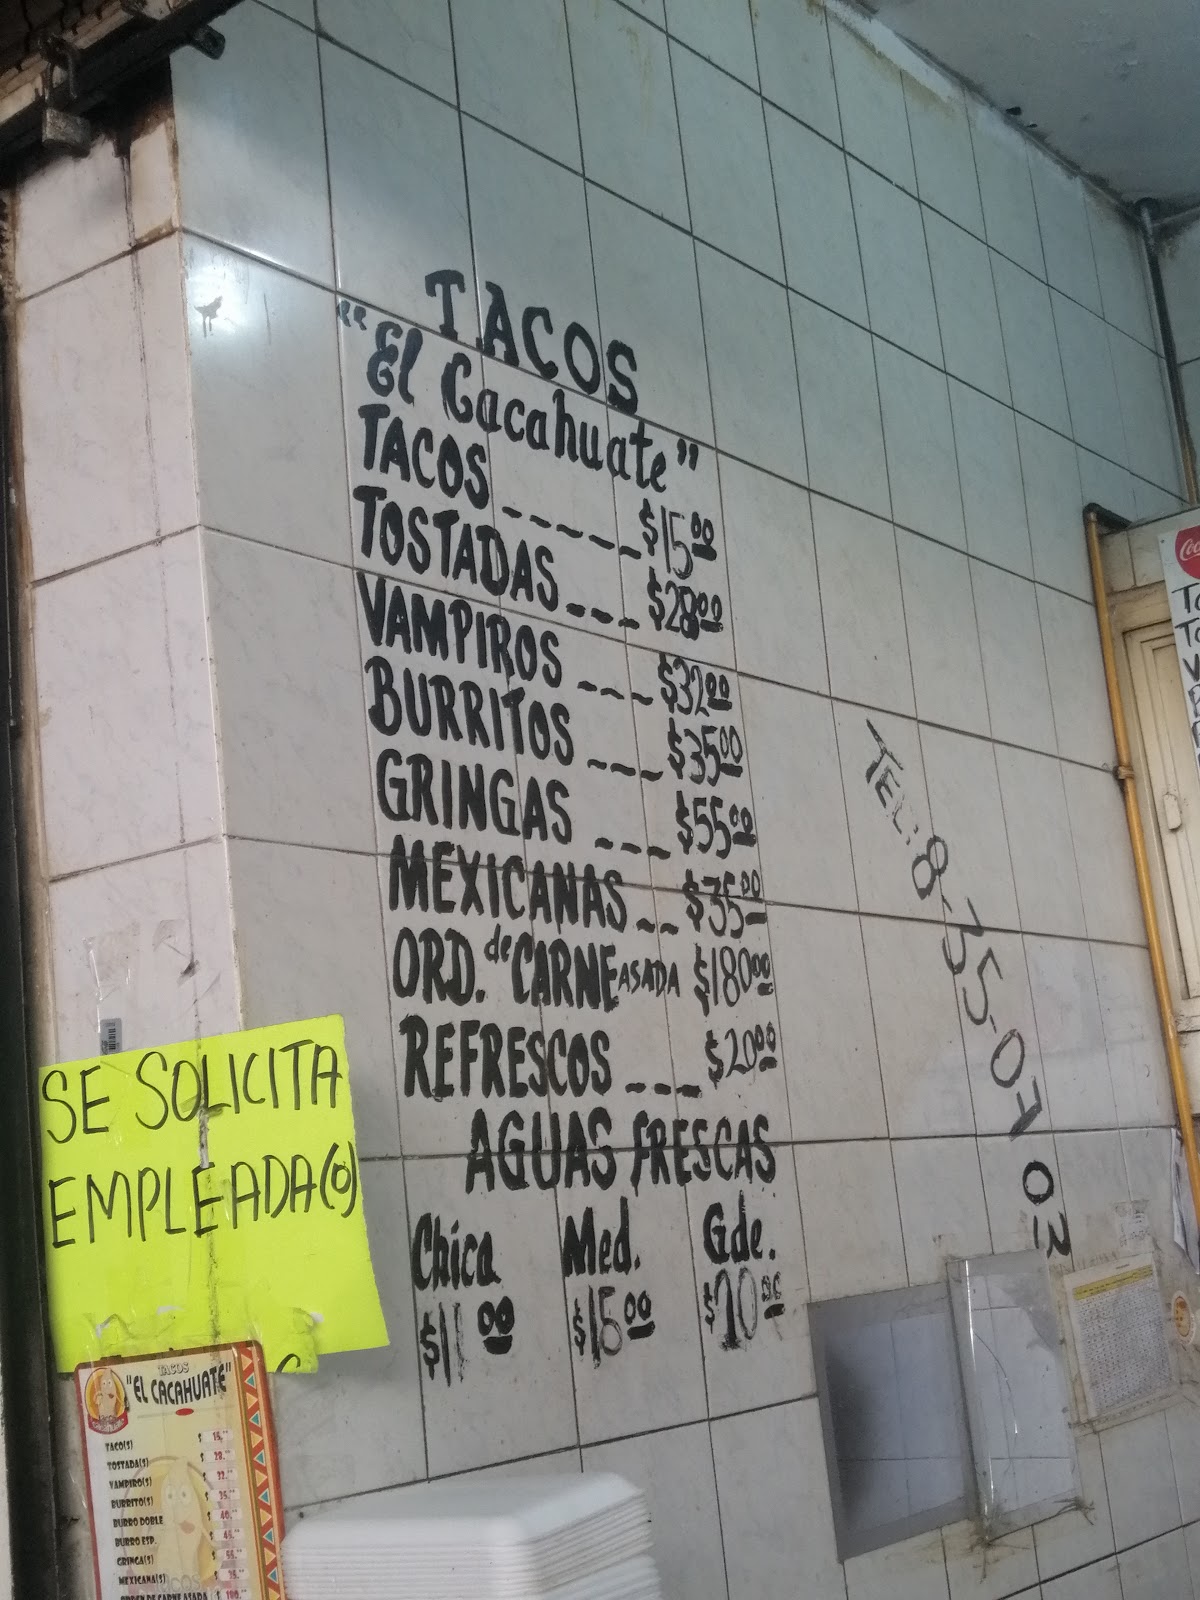 TACOS
"El Cacahuate"
TACOS $15.00
TOSTADAS $28.00
VAMPIROS $32.00
BURRITOS $35.00
GRINGAS $55.00
MEXICANAS $35.00
ORD. de CARNE ASADA $180.00
REFRESCOS $20.00
AGUAS FRESCAS
Chica Med. Gde.
$11.00 $15.00 $20.00
TEL: 8-35-07 02
SE SOLICITA
EMPLEADA(O)
TACOS
"EL CACAHUATE"
TACO(S) $ 15.00
TOSTADA(S) $ 28.00
VAMPIRO(S) $ 32.00
BURRITO(S) $ 35.00
BURRO DOBLE $ 40.00
BURRO ESP. $ 45.00
GRINGA(S) $ 55.00
MEXICANA(S) $ 35.00
ORDEN DE CARNE ASADA $ 180.00